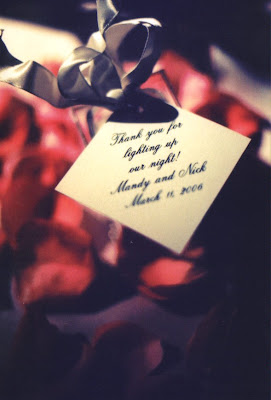 Thank you for
lighting up
our night!
Mandy and Nick
March 11, 2006